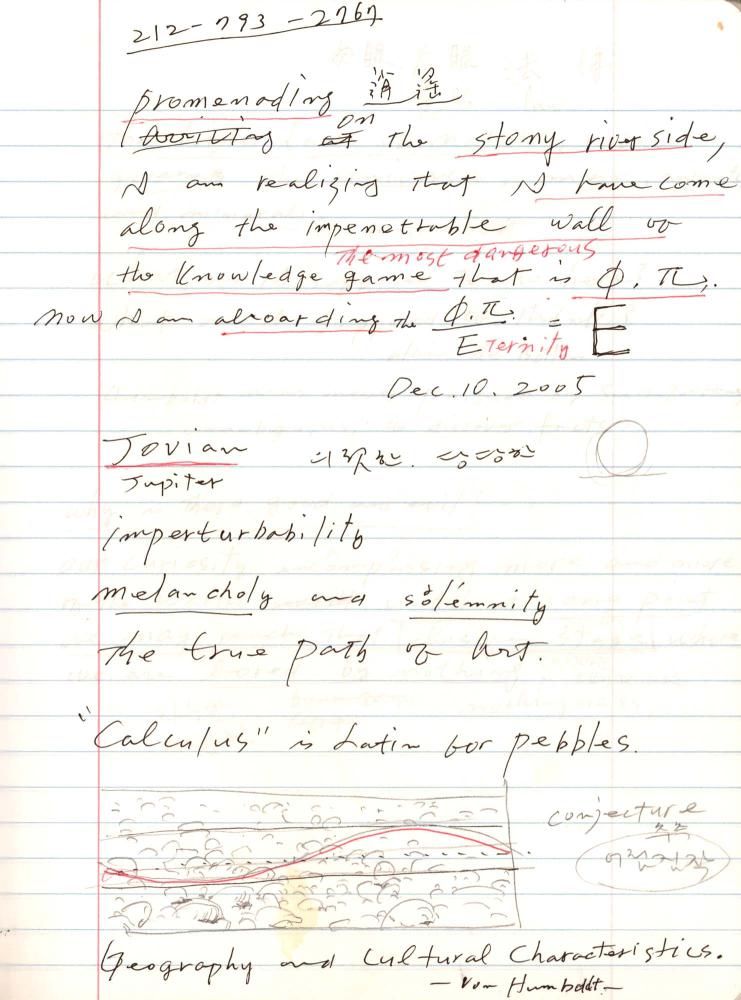 212-793-2767
promenading 逍遙
Arriving at on the stony river side,
I am realizing that I have come
along the impenetrable wall of
the most dangerous
the Knowledge game that is Φ.π.
now I am aboarding the Φ.π. / Eternity = E
Dec. 10. 2005
Jovian 의젓한. 당당한
Jupiter
imperturbability
melancholy and solémnity
the true path of Art.
"Calculus" is Latin for pebbles.
conjecture
추측
어림짐작
Geography and Cultural Characteristics.
- Von Humboldt -